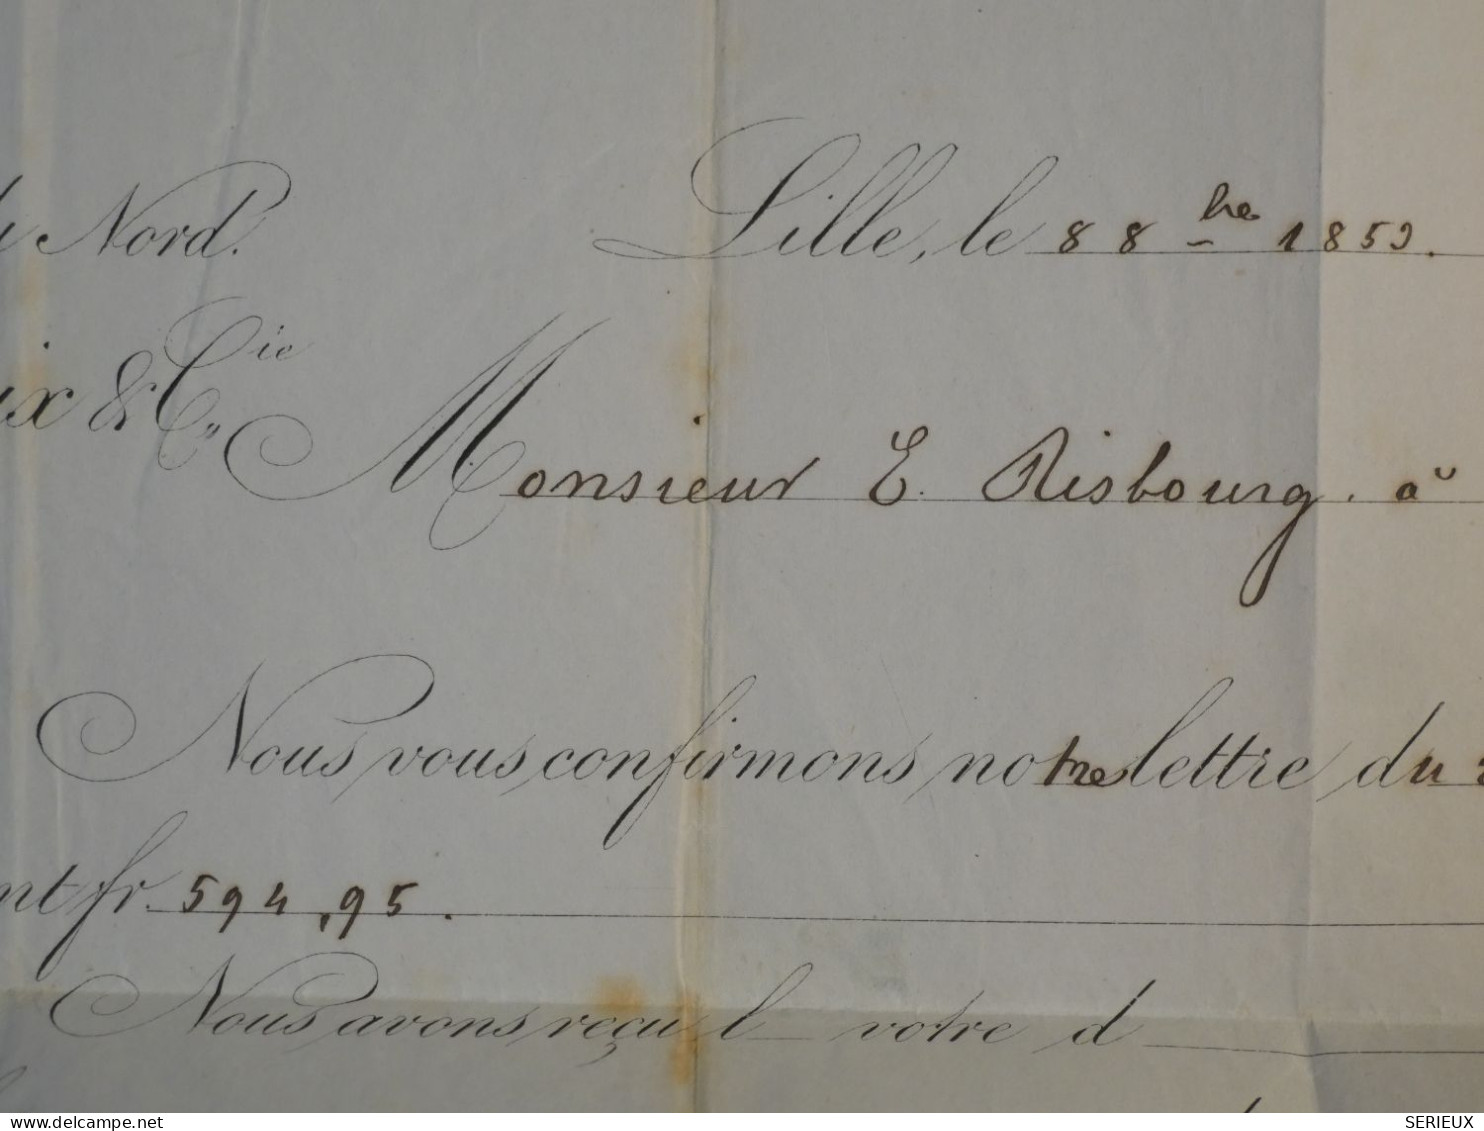 Nord. Lille, le 8 8bre 1859.
ix & Cie, Monsieur E. Risbourg. à
Nous vous confirmons notre lettre du
nt fr. 594,95.
Nous avons reçu l votre d
delcampe.net
SERIEUX